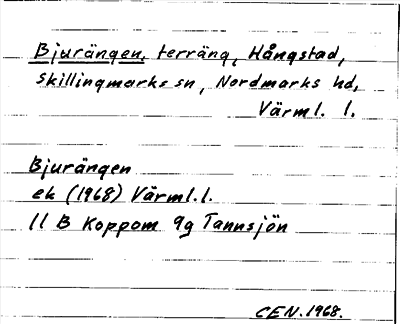 Bjurängen, terräng, Hångstad,
Skillingmarks sn, Nordmarks hd,
Värml. l.
Bjurängen
ek (1968) Värml.l.
11 B Koppom 9g Tannsjön
CEN. 1968.